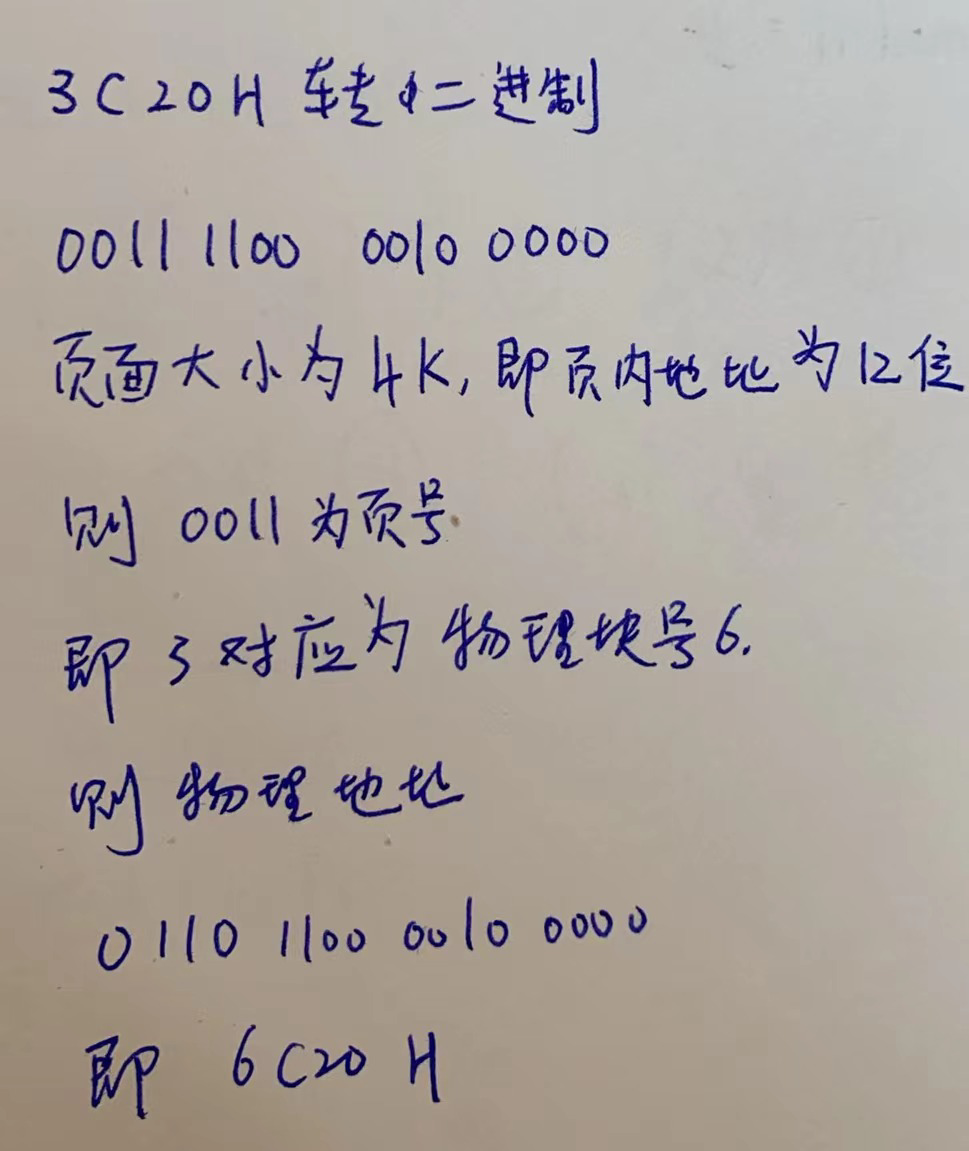 3C20H 转十二进制
0011 1100 0010 0000
页面大小为4K,即页内地址为12位
则 0011为页号
即 3对应为物理块号6.
则物理地址
0110 1100 0010 0000
即 6C20H